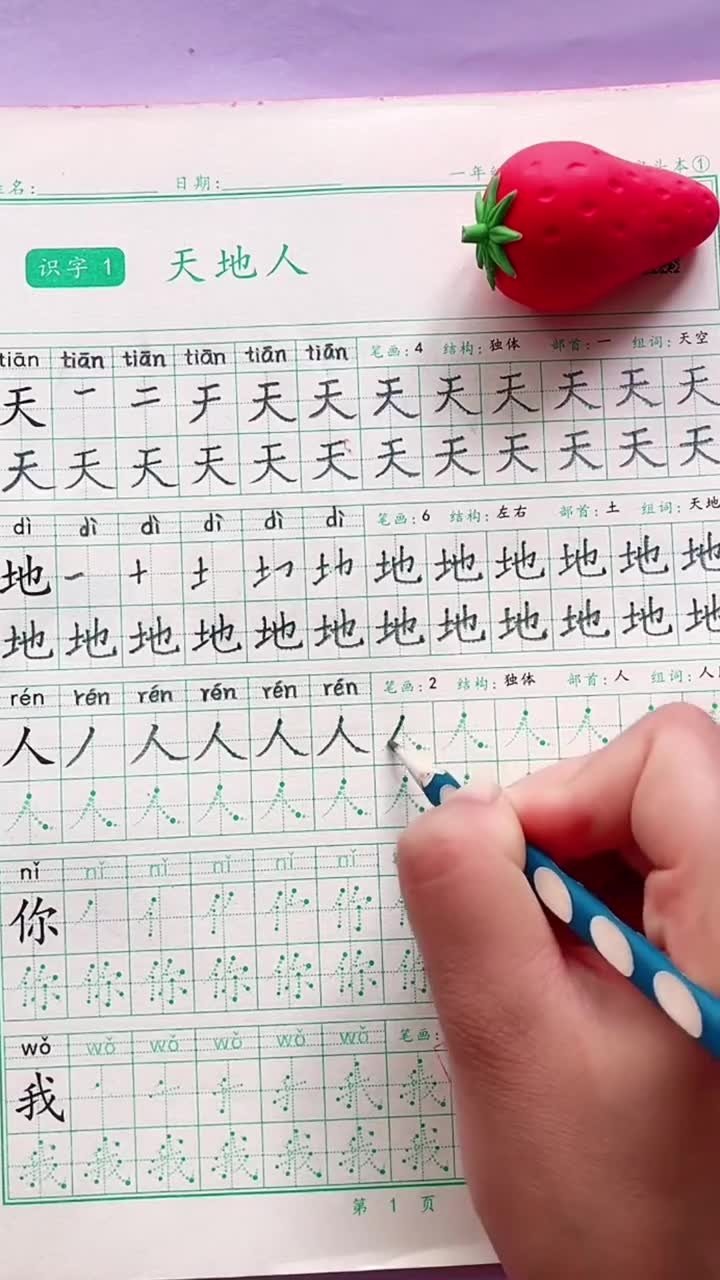 名: 日期: 一年 本①
识字 1 天地人
tiān tiān tiān tiān tiān tiān 笔画: 4 结构: 独体 部首: 一 组词: 天空
天 一 二 于 天 天 天 天 天 天 天 天
天 天 天 天 天 天 天 天 天 天 天 天
dì dì dì dì dì dì 笔画: 6 结构: 左右 部首: 土 组词: 天地
地 一 十 土 地 地 地 地 地 地
地 地 地 地 地 地 地 地 地 地 地 地
rén rén rén rén rén rén 笔画: 2 结构: 独体 部首: 人 组词: 人
人 丿 人 人 人 人 人 人 人 人
人 人 人 人 人 人 人
nǐ nǐ nǐ nǐ nǐ nǐ
你 丿 亻
你 你 你 你 你 你
wǒ wǒ wǒ wǒ wǒ wǒ 笔画:
我 我 我
我 我 我 我 我 我 我
第 1 页